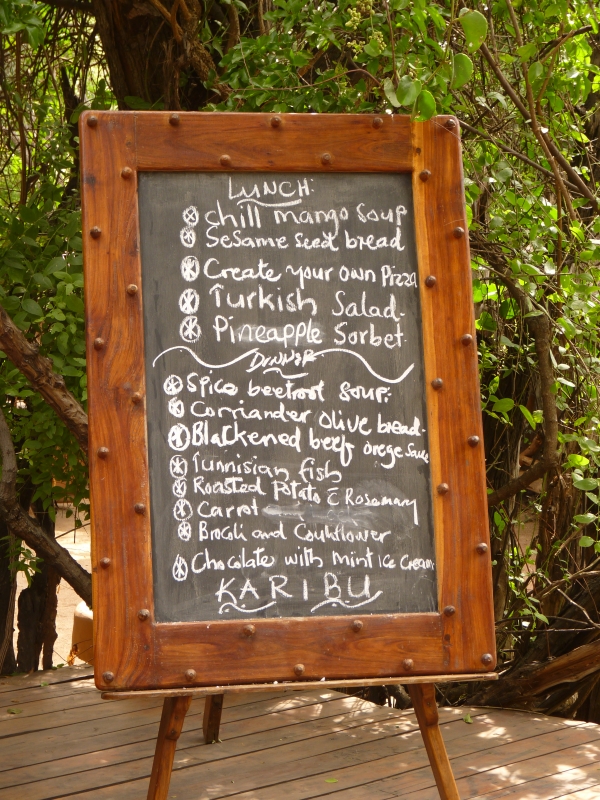 LUNCH:
Chill mango soup
Sesame Seed bread
Create your own Pizza
Turkish Salad.
Pineapple Sorbet
DINNER
Spice beetroot soup:
Corriander Olive bread.
Blackened beef orege Sauce
Tunnisian fish
Roasted Potato & Rosemary
Carrot
Brocli and Couliflower
Chocolate with mint Ice Cream
KARIBU